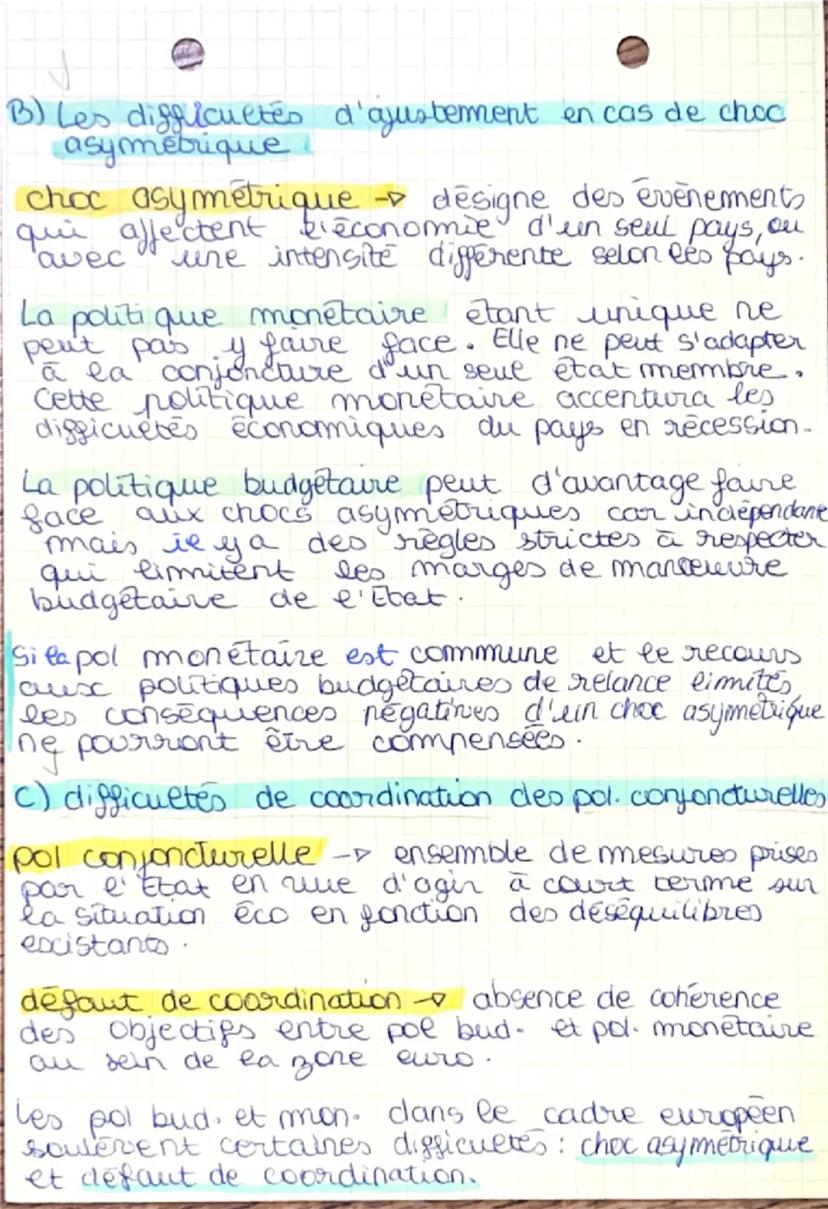 B) Les difficultés d'ajustement en cas de choc
asymétrique
choc asymétrique → désigne des évènements
qui affectent l'économie d'un seul pays, ou
avec une intensité différente selon les pays.
La politique monétaire étant unique ne
peut pas y faire face. Elle ne peut s'adapter
à la conjoncture d'un seul état membre.
Cette politique monétaire accentura les
difficultés économiques du pays en récession.
La politique budgétaire peut d'avantage faire
face aux chocs asymétriques car indépendante
mais il y a des règles strictes à respecter
qui limitent les marges de manœuvre
budgétaire de l'État.
Si la pol monétaire est commune et le recours
aux politiques budgétaires de relance limités,
les conséquences négatives d'un choc asymétrique
ne pourront être compensées.
C) difficultés de coordination des pol. conjoncturelles
pol conjoncturelle → ensemble de mesures prises
par l'État en vue d'agir à court terme sur
la situation éco en fonction des déséquilibres
existants.
défaut de coordination → absence de cohérence
des objectifs entre pol bud. et pol. monétaire
au sein de la zone euro.
Les pol bud. et mon. dans le cadre européen
soulèvent certaines difficultés : choc asymétrique
et défaut de coordination.